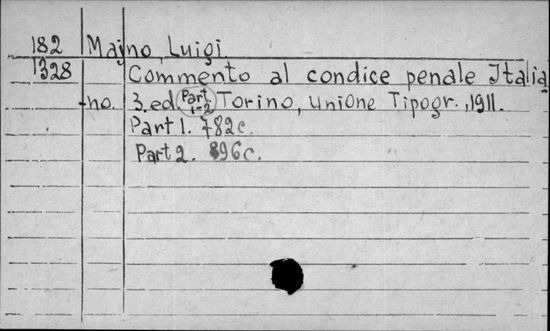 182 Majno, Luigi.
1328 Commento al condice penale Italia
-no. 3. ed (Part. 1-2) Torino, Unione Tipogr., 1911.
Part 1. 782c.
Part 2. 896c.